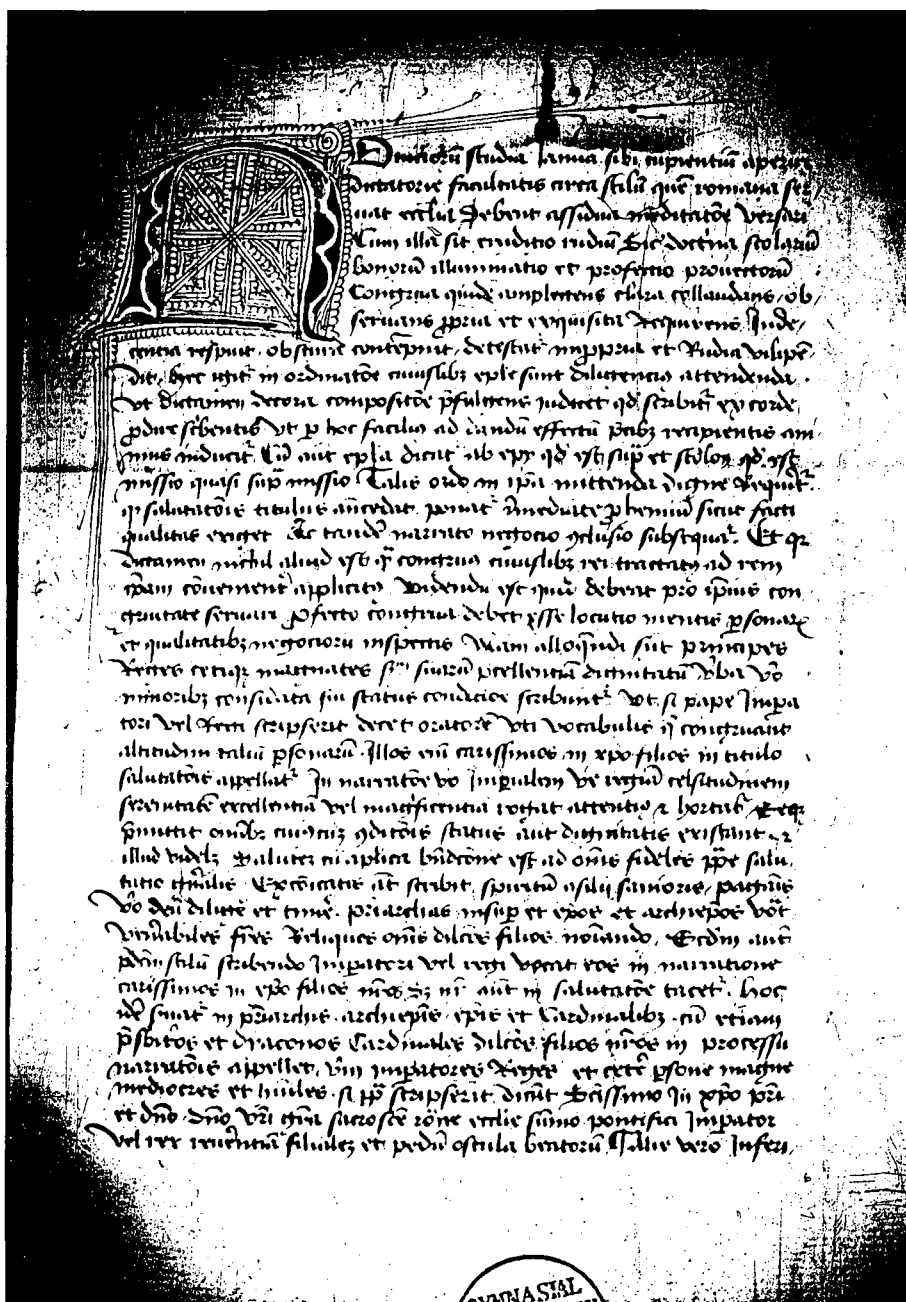 Omnciorũ studia Ianua sibi cupientiũ aperiri
dictatorie facultatis circa stilũ quẽ romana ser
uat ecclia Debent assidua meditatõe versari
Cum illa sit eruditio rudiũ Sic doctrina scolariũ
bonorũ illuminatio et profectio prouectorũ
Congrua quidẽ amplectens clara collaudans, ob,
seruans ꝓpria et exquisita Requirens Inde,
centia respuit, obscura contẽpnit, detestat̾ impropria et Rudia vilipẽ
dit, hec igit̾ in ordinatõe cuiuslibz eple sunt diligencius attendenda
vt dictamen decora compositõe p̃fulgens iudicet qd̾ scribit̾ ex corde
ꝓdire sc̾bentis vt ꝑ hoc facilius ad dandũ effectũ p̃cibz recipientis ani
mus inducat̾ Cũ aut epla dicat̾ ab epy qd̾ est sup̃ et stolon qd̾ est
missio quasi sup̃ missio Talis ordo in ip̃a mittenda digne Requirit̾
qr salutatõis titulus ãncedat ponat̾ ĩmediate ꝓhemiũ sicut facti
qualitas exiget Ac tandẽ narrato negocio ꝯclusio subsequat̾. Et qr
dictamen nichil aliud est qͣ̃ congruus cuiuslibz rei tractatus ad rem
ip̃am cõuenient̾ applicitus Videndũ est que debeat pro ip̃ius con
gruitate seruari ꝓfecto congrua debet esse locutio mentis ꝑsonaꝝ
et qualitatibz negociorũ inspectis Nam alloquẽdi sũt principes
Reges ceteriqz magnates sm̾ suarũ p̃cellentiã dignitatũ v̾ba v̾o
minoribz considerata sui status condicõe scribunt̾ vt si pape Impa
tori vel Regi scripserit decet oratorẽ vti vocabulis q̾ congruant
altitudini taliũ ꝑsonarũ. Illos em̃ carissimos in xp̃o filios in titulo
salutatõis appellat̾ In narratõe v̾o Imꝑialem ve regiã celsitudinem
serenitatẽ excellentiã vel magnificentiã rogat attentius ⁊ hortat̾ Reqr̾
p̃mittit om̃ibz cuiuscũqz ꝯditõis status aut dignitatis existant ⁊
illud videlz Salutez cũ aplica bñdcõne est ad om̃s fideles pp̃e salu,
tatio gñalis Excõicatis ãt scribit, spiritũ ꝯsilii sanioris, paganis
v̾o deũ diligẽ et timẽ. priarchas insuꝑ et ep̃os et archiep̃os vocat
ven̾abiles fr̃es Reliquos om̃s dilcõs filios noĩando, Eodm̃ aut̾
pdcm̃ stilũ scribendo Imꝑatori vel regi vocat eos in narratione
carissimos in xp̃o filios nr̃os Sz nr̾ aut̾ in salutatõe tacet̾. hoc
idẽ seruat̾ in p̃riarchis archiep̃is ep̃is et Cardinalibz. cũ etiam
p̃sbit̾os et dyaconos Cardinales dilcõs filios nr̃os in processu
narratõis appellet, vñ imꝑatores Reges et cet̾e ꝑsone magne
mediocres et hũiles. si pp̃ scripserit dicũt Scissimo In xp̃o pr̃i
et dño. dño vr̃i gr̃a sacroscẽ roñe ecclie sũmo pontifici Imꝑator
vel rex reuerẽtiã filialez et pedũ oscula beatorũ Talis vero Inferi,
GYMNASIAL